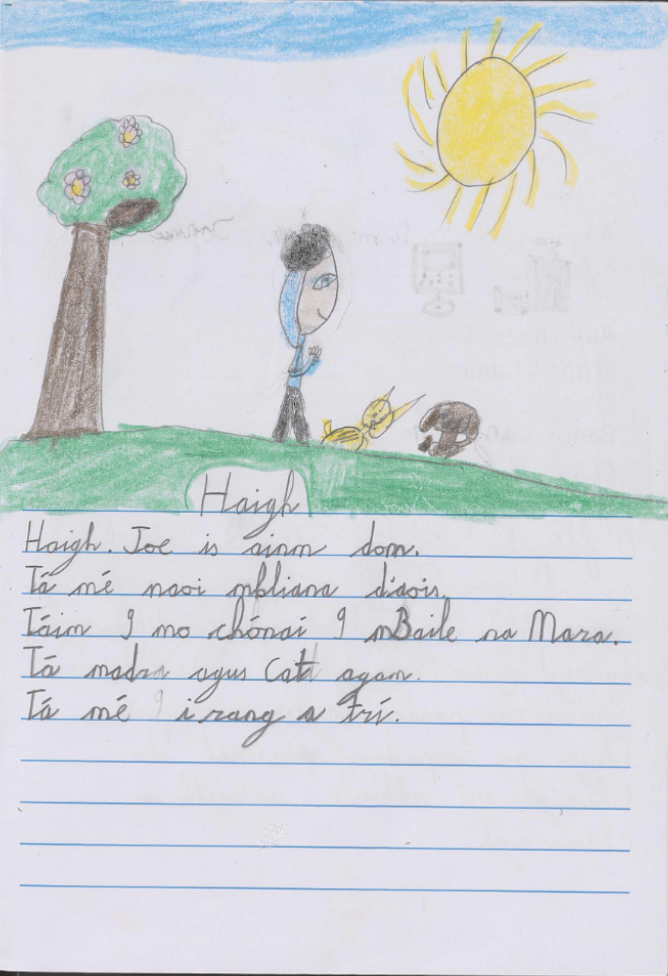 Haigh
Haigh. Joe is ainm dom.
Tá mé naoi mbliana d'aois.
Táim I mo chónaí I mBaile na Mara.
Tá madra agus Cat agam.
Tá mé i rang a trí.